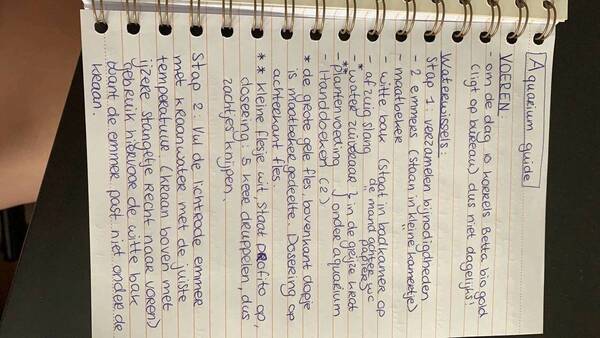 Aquarium guide
VOEREN:
- om de dag 10 korrels Betta bio gold
(ligt op bureau) dus niet dagelijks!
Waterwissels:
Stap 1: verzamelen bijnodigdheden
- 2 emmers (staan in kleine kamertje)
- maatbeker
- witte bak (staat in badkamer op
de mand achter wc
- afzuig slang papier)
* water zuiveraar } in de grijze krat
** plantenvoeding } onder aquarium
- Handdoeken (2)
* de grote gele fles, bovenkant dopje
is maatbeker gedeelte. Dosering op
achterkant fles.
** kleine flesje wit, staat profito op,
dosering: 5 keer druppelen, dus
zachtjes knijpen.
Stap 2: Vul de lichtrode emmer
met kraanwater met de juiste
temperatuur. (kraan boven met
ijzere stangetje recht naar voren)
gebruik hiervoor de witte bak
want de emmer past niet onder de
kraan.